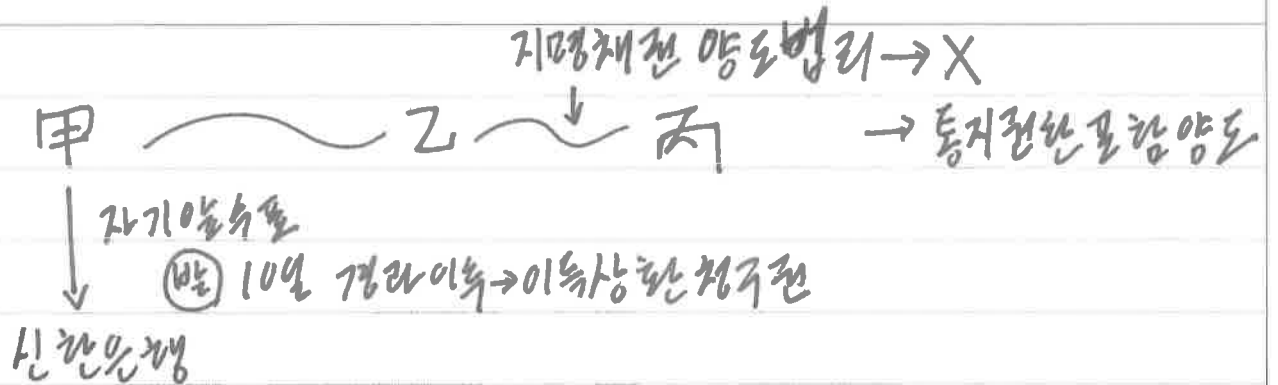 지명채권 양도법리→X
甲 乙 丙 →통지권한포함양도
자기앞수표
발 10일 경과이후→이득상환청구권
신한은행